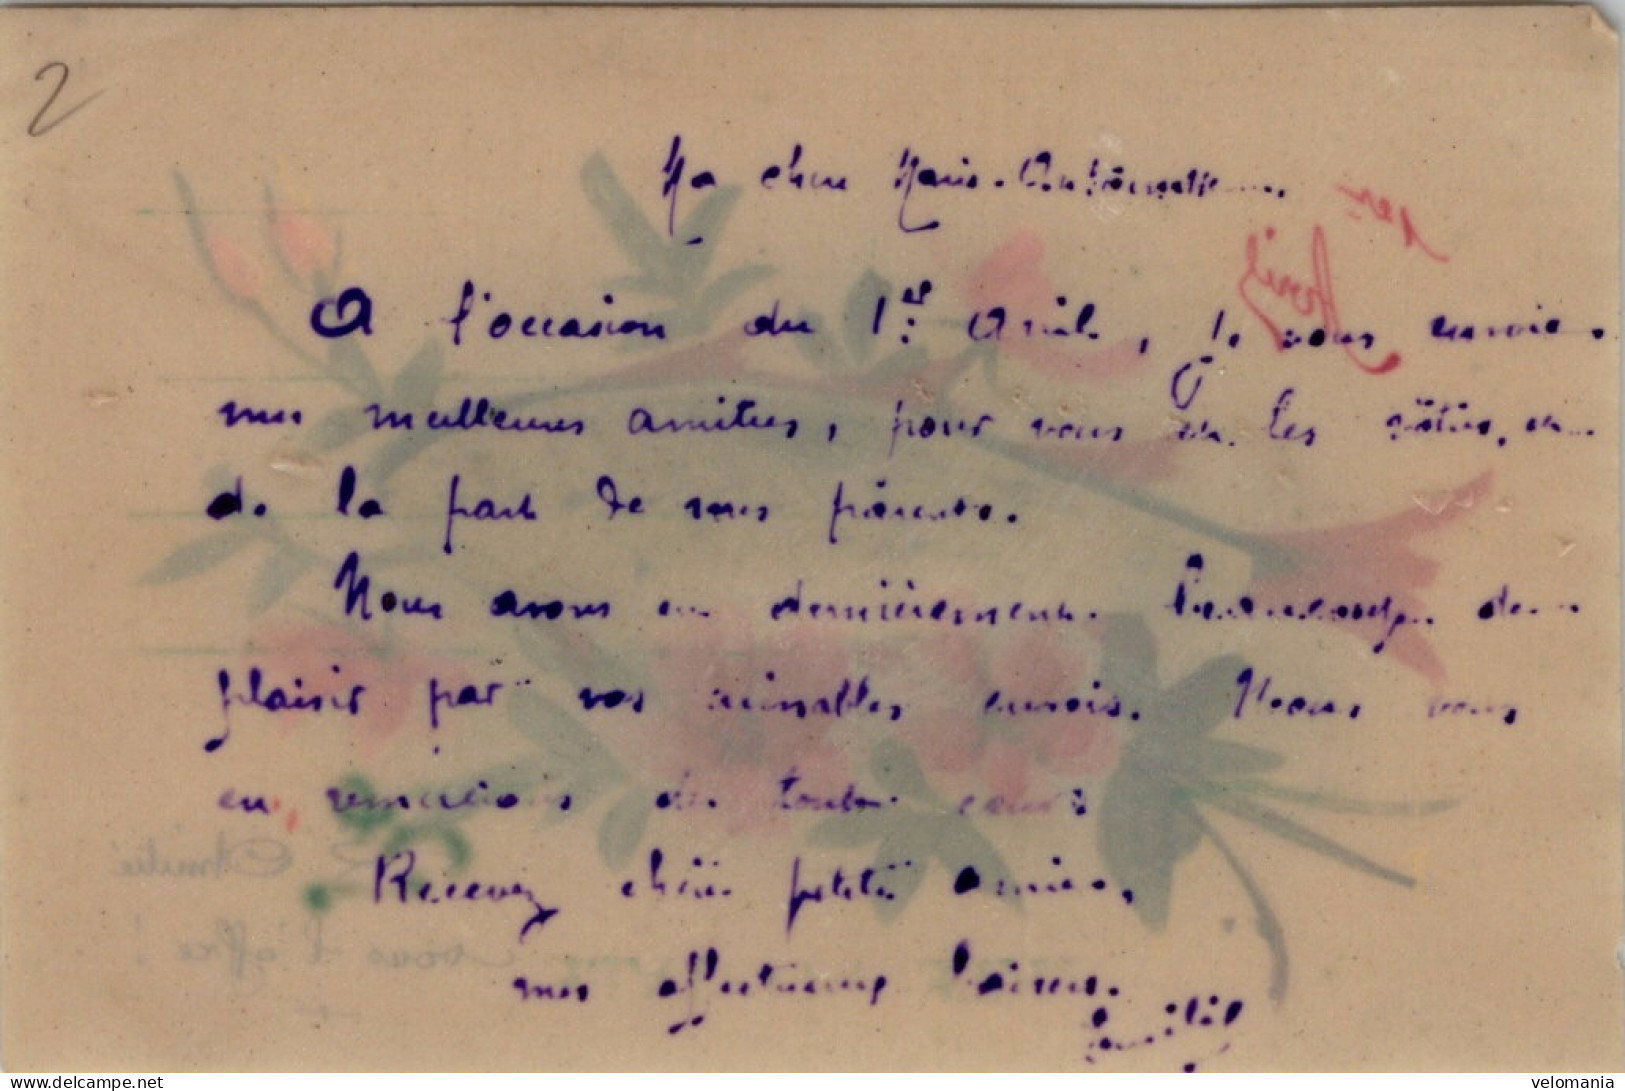 2
Ma cher Marie-Antoinette
A l'occasion du 1er Avril, je vous envoie
mes meilleures amitiés, pour vous en les
de la part de mes parents.
Nous avons eu dernièrement beaucoup de
plaisir par vos aimables envois. Nous vous
en remercions de tout cœur.
Recevez chère petite amie,
mes affectueux baisers.
1er
Avril
L'Amitié
vous l'offre !
www.delcampe.net
velomania